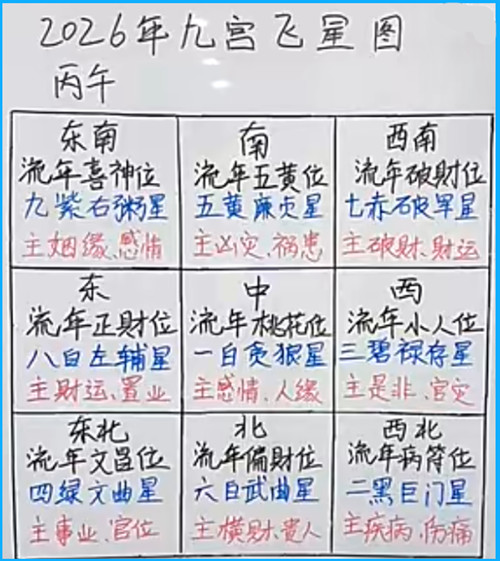 2026年九宫飞星图
丙午
东南
流年喜神位
九紫右弼星
主姻缘、感情
南
流年五黄位
五黄廉贞星
主凶灾、祸患
西南
流年破财位
七赤破军星
主破财、财运
东
流年正财位
八白左辅星
主财运、置业
中
流年桃花位
一白贪狼星
主感情、人缘
西
流年小人位
三碧禄存星
主是非、官灾
东北
流年文昌位
四绿文曲星
主事业、官位
北
流年偏财位
六白武曲星
主横财、贵人
西北
流年病符位
二黑巨门星
主疾病、伤痛